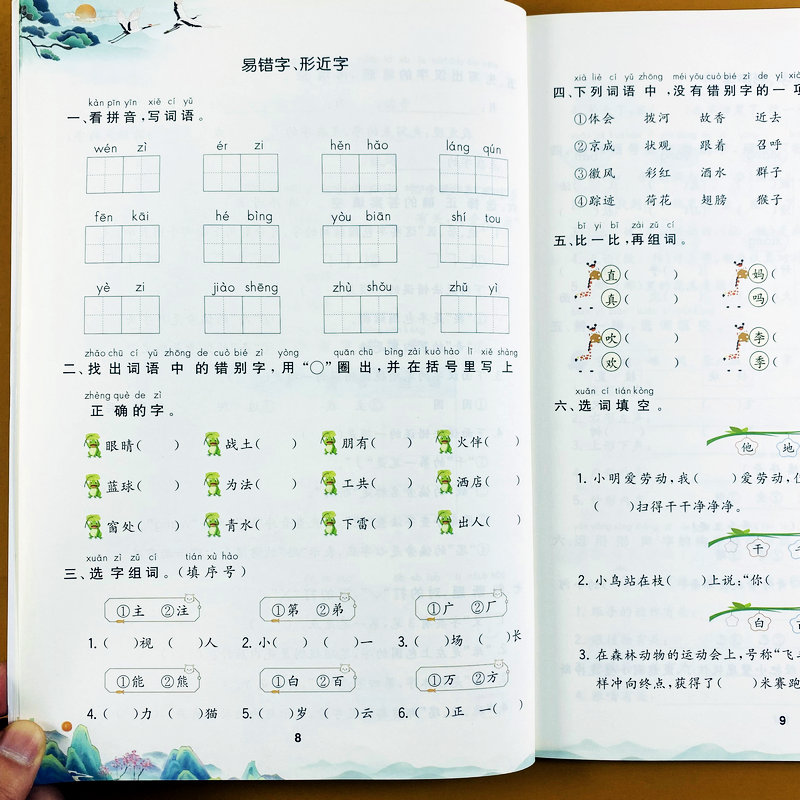 易错字、形近字
kàn pīn yīn xiě cí yǔ
一、看拼音,写词语。
wén zì ér zi hěn hǎo láng qún
fēn kāi hé bìng yòu biān shí tou
yè zi jiào shēng zhù shǒu zhǔ yì
zhǎo chū cí yǔ zhōng de cuò bié zì yòng quān chū bìng zài kuò hào lǐ xiě shàng
二、找出词语中的错别字,用“○”圈出,并在括号里写上
zhèng què de zì
正确的字。
眼晴( ) 战土( ) 朋有( ) 火伴( )
蓝球( ) 为法( ) 工共( ) 洒店( )
窗处( ) 青水( ) 下雷( ) 出人( )
xuǎn zì zǔ cí tián xù hào
三、选字组词。(填序号)
①主 ②注 ①第 ②弟 ①广 ②厂
1.( )视 ( )人 2.小( ) ( )一 3.( )场 ( )长
①能 ②熊 ①白 ②百 ①万 ②方
4.( )力 ( )猫 5.( )岁 ( )云 6.( )正 一( )
8
xià liè cí yǔ zhōng méi yǒu cuò bié zì de yí xià
四、下列词语中,没有错别字的一项
①体会 拨河 故香 近去
②京成 状观 跟着 召呼
③徽风 彩红 酒水 群子
④踪迹 荷花 翅膀 猴子
bǐ yi bǐ zài zǔ cí
五、比一比,再组词。
直( ) 妈( )
真( ) 吗( )
吹( ) 李( )
欢( ) 季( )
xuǎn cí tián kòng
六、选词填空。
他 地
1.小明爱劳动,我( )爱劳动,
( )扫得干干净净净。
干
2.小鸟站在枝( )上说:“你(
白
3.在森林动物的运动会上,号称“飞
样冲向终点,获得了( )米赛跑
9